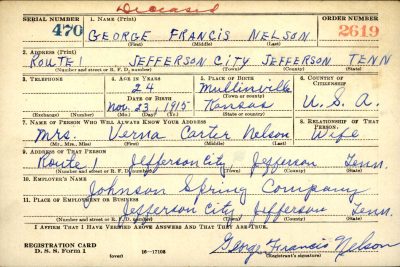 Deceased
SERIAL NUMBER 1. NAME (Print) ORDER NUMBER
470 GEORGE FRANCIS NELSON 2619
(First) (Middle) (Last)
2. ADDRESS (Print)
ROUTE 1 JEFFERSON CITY JEFFERSON TENN
(Number and street or R. F. D. number) (Town) (County) (State)
3. TELEPHONE 4. AGE IN YEARS 5. PLACE OF BIRTH 6. COUNTRY OF CITIZENSHIP
24 Mullinville
DATE OF BIRTH (Town or county)
Nov. 23, 1915 Kansas U.S.A.
(Exchange) (Number) (Mo.) (Day) (Yr.) (State or country)
7. NAME OF PERSON WHO WILL ALWAYS KNOW YOUR ADDRESS 8. RELATIONSHIP OF THAT PERSON
Mrs. Verna Carter Nelson Wife
(Mr., Mrs., Miss) (First) (Middle) (Last)
9. ADDRESS OF THAT PERSON
Route 1 Jefferson City, Jefferson Tenn.
(Number and street or R. F. D. number) (Town) (County) (State)
10. EMPLOYER'S NAME
Johnson Spring Company
11. PLACE OF EMPLOYMENT OR BUSINESS
Jefferson City Jefferson Tenn.
(Number and street or R. F. D. number) (Town) (County) (State)
I AFFIRM THAT I HAVE VERIFIED ABOVE ANSWERS AND THAT THEY ARE TRUE.
REGISTRATION CARD George Francis Nelson
D. S. S. Form 1 (over) 16—17105 (Registrant's signature)